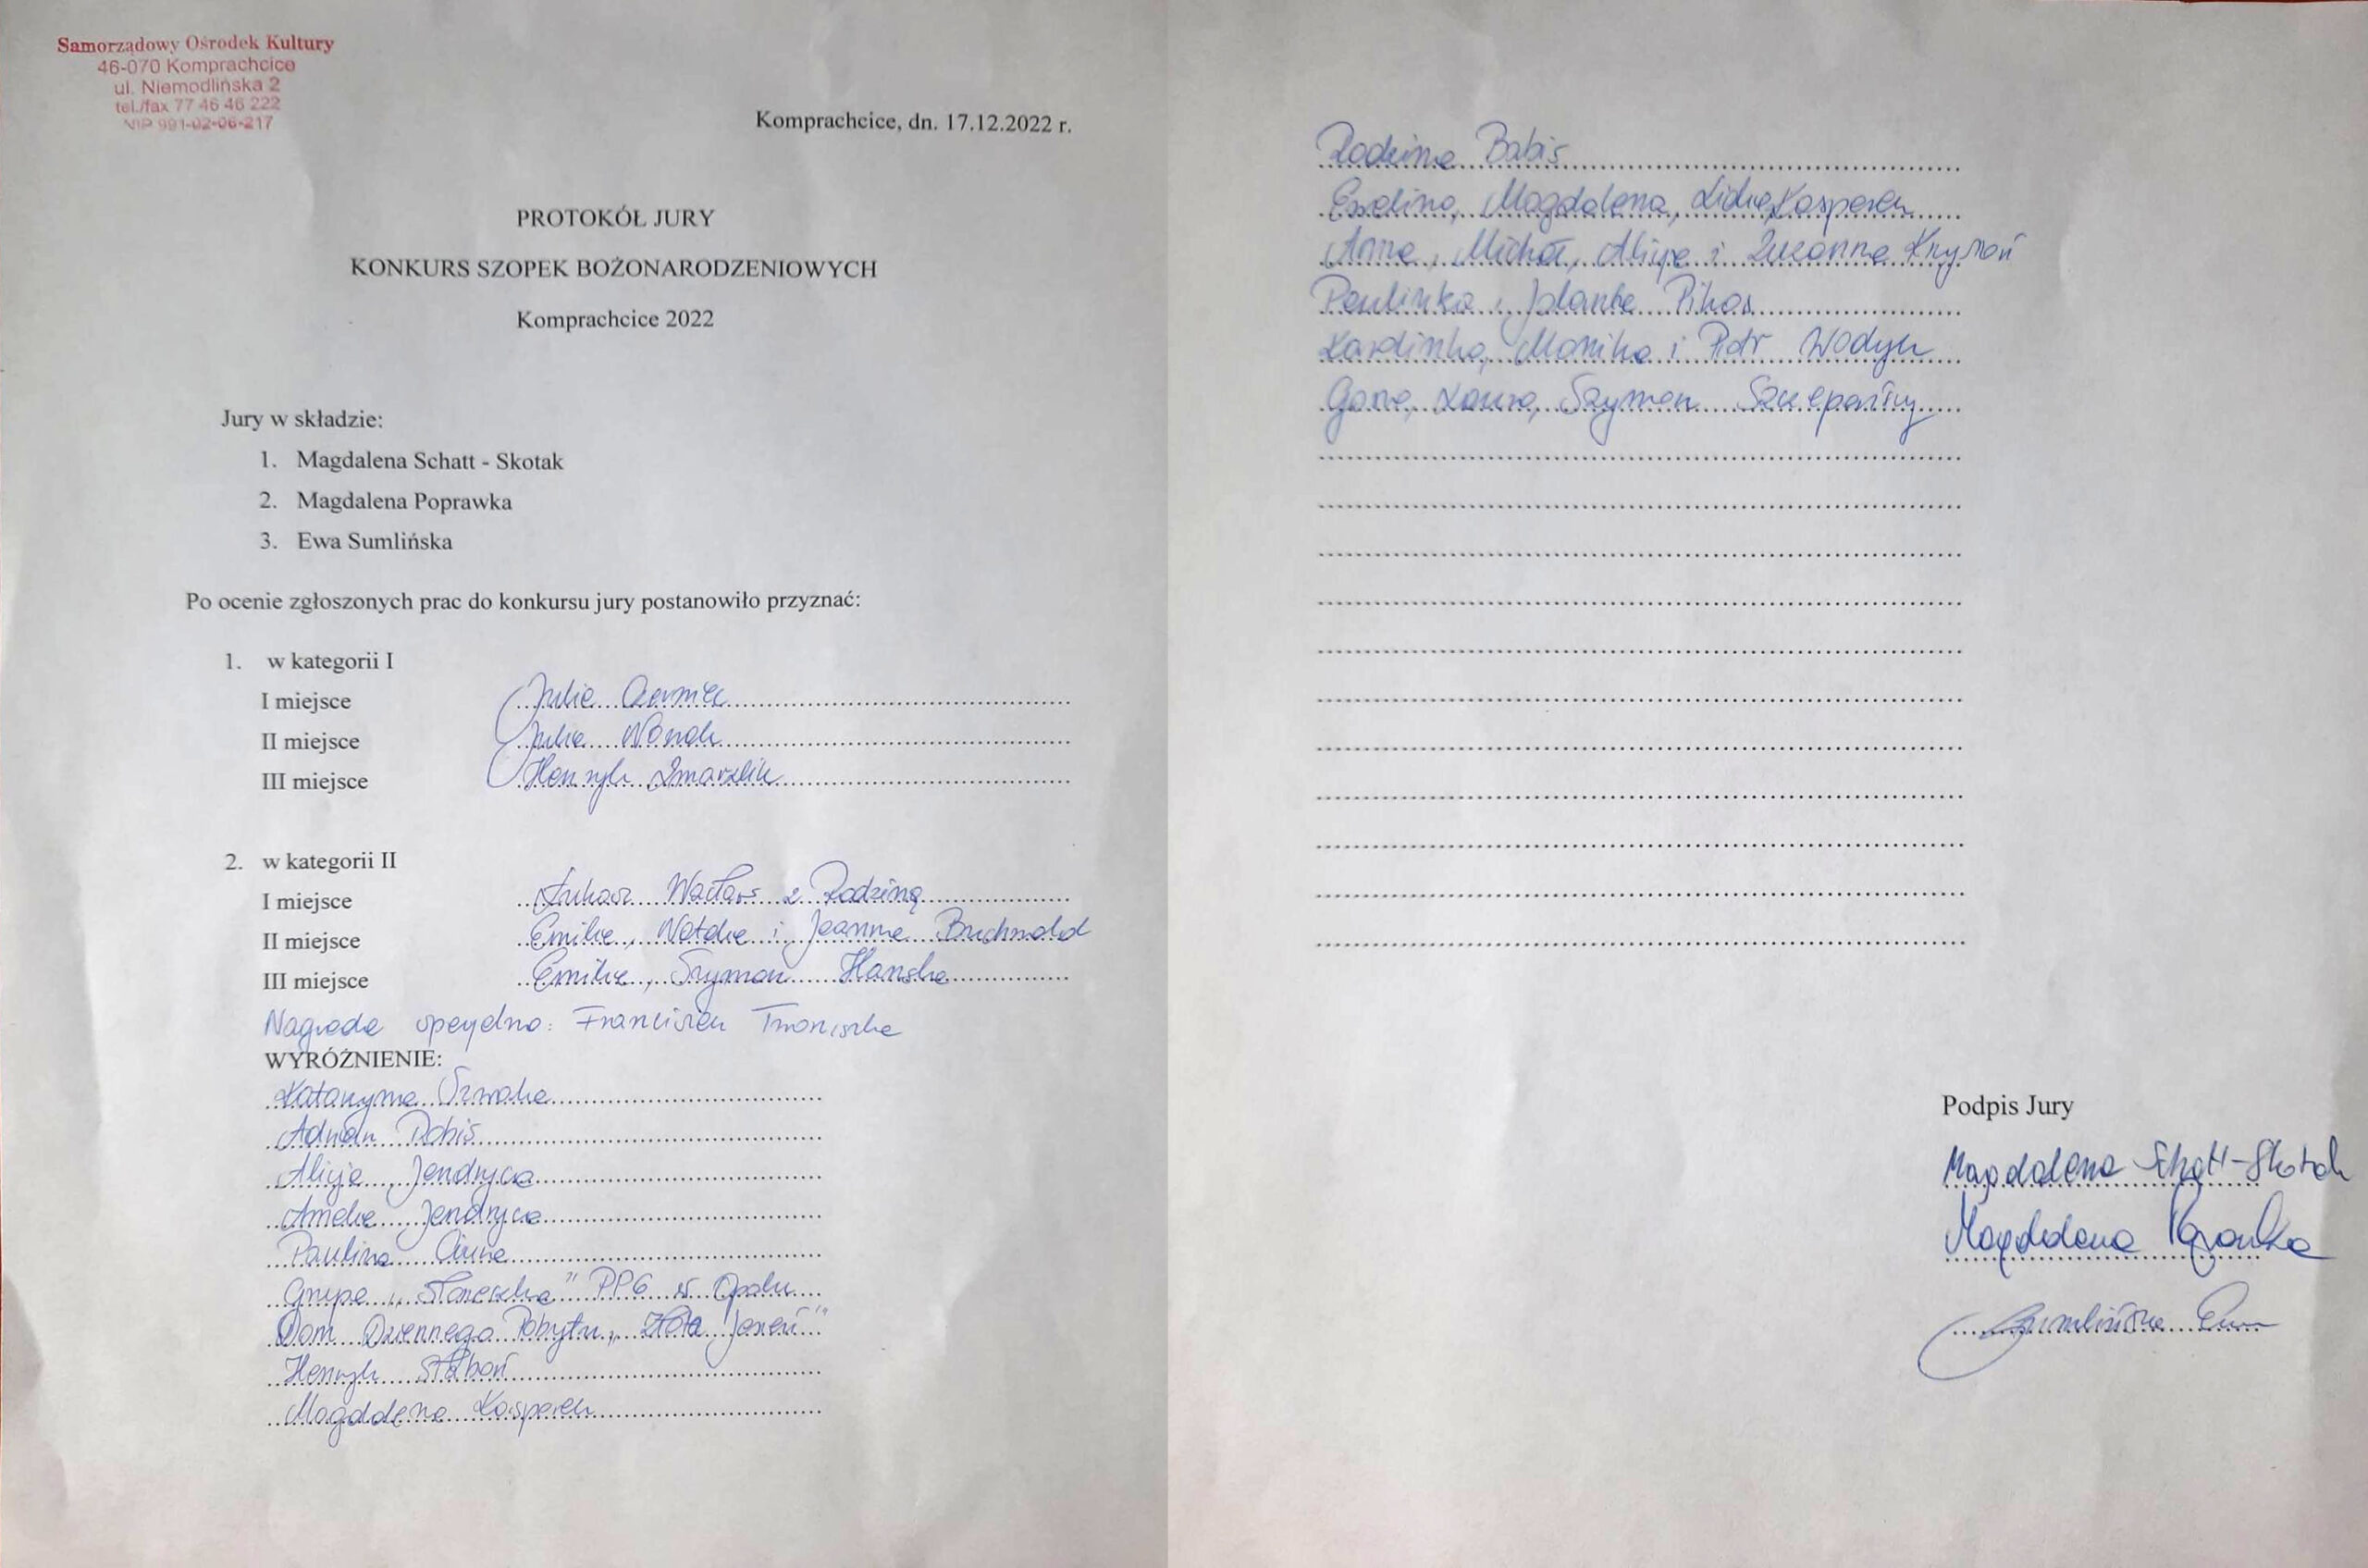 Samorządowy Ośrodek Kultury
46-070 Komprachcice
ul. Niemodlińska 2
tel./fax 77 46 46 222
NIP 991-02-06-217
Komprachcice, dn. 17.12.2022 r.
PROTOKÓŁ JURY
KONKURS SZOPEK BOŻONARODZENIOWYCH
Komprachcice 2022
Jury w składzie:
1. Magdalena Schatt - Skotak
2. Magdalena Poprawka
3. Ewa Sumlińska
Po ocenie zgłoszonych prac do konkursu jury postanowiło przyznać:
1. w kategorii I
I miejsce Julia Czermiec
II miejsce Julia Wonak
III miejsce Henryk Zmarzlik
2. w kategorii II
I miejsce Łukasz Wacław z Rodziną
II miejsce Emilia, Natalia i Joanna Buchwald
III miejsce Emilia, Szymon Hanska
Nagroda specjalna: Franciszek
WYRÓŻNIENIE:
Katarzyna
Adrian
Alicja Jendryca
Amelia Jendryca
Paulina
Grupa „Słoneczka" PPG w Opolu
Dom Dziennego Pobytu „Złota Jesień"
Henryk Słaboń
Magdalena Kasparek
Rodzina Babis
Ewelina, Magdalena, Lidia Kasparek
Anna, Michał, Alicja i Zuzanna Krysoń
Paulinka i Jolanta Pikos
Karolinka, Monika i Piotr Wodyk
Laura, Szymon Szczepańscy
Podpis Jury
Magdalena Schatt-Skotak
Magdalena Poprawka
Sumlińska Ewa